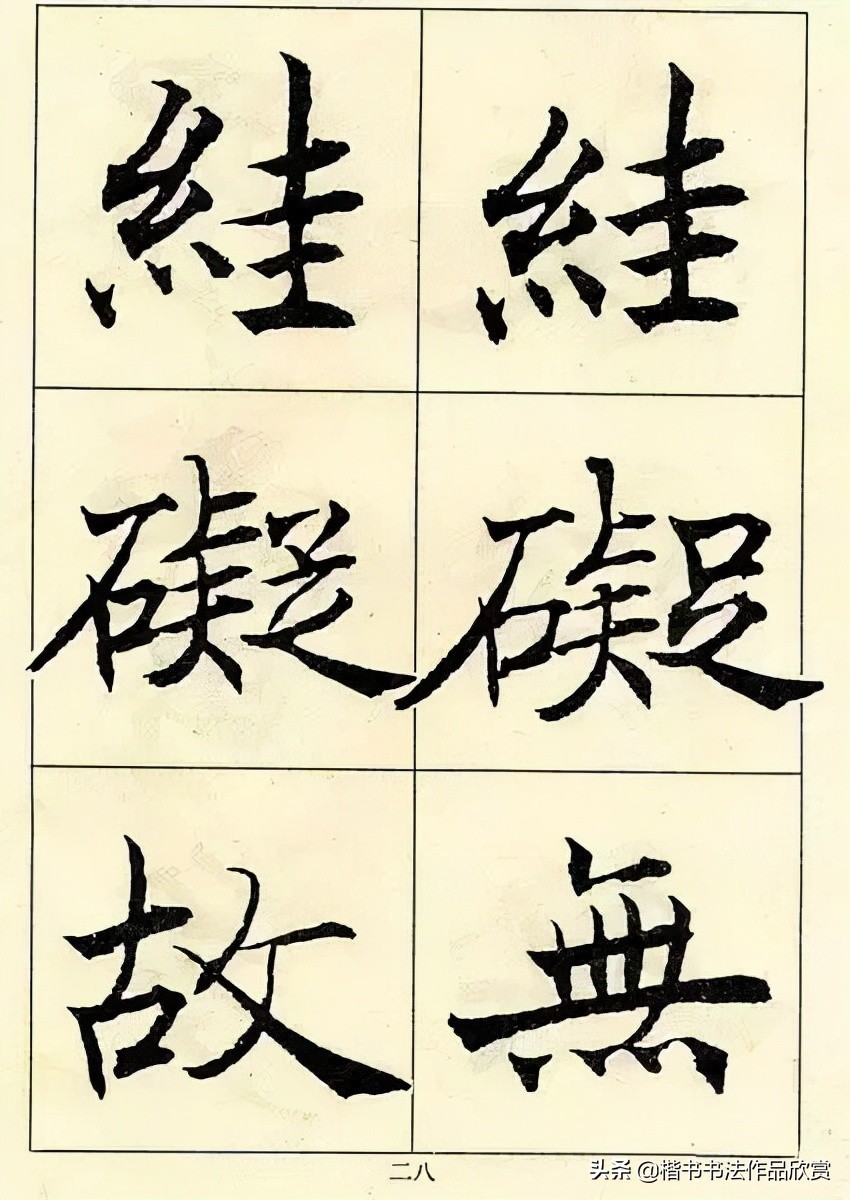 絓礙無
絓礙故
二八
头条 @楷书书法作品欣赏